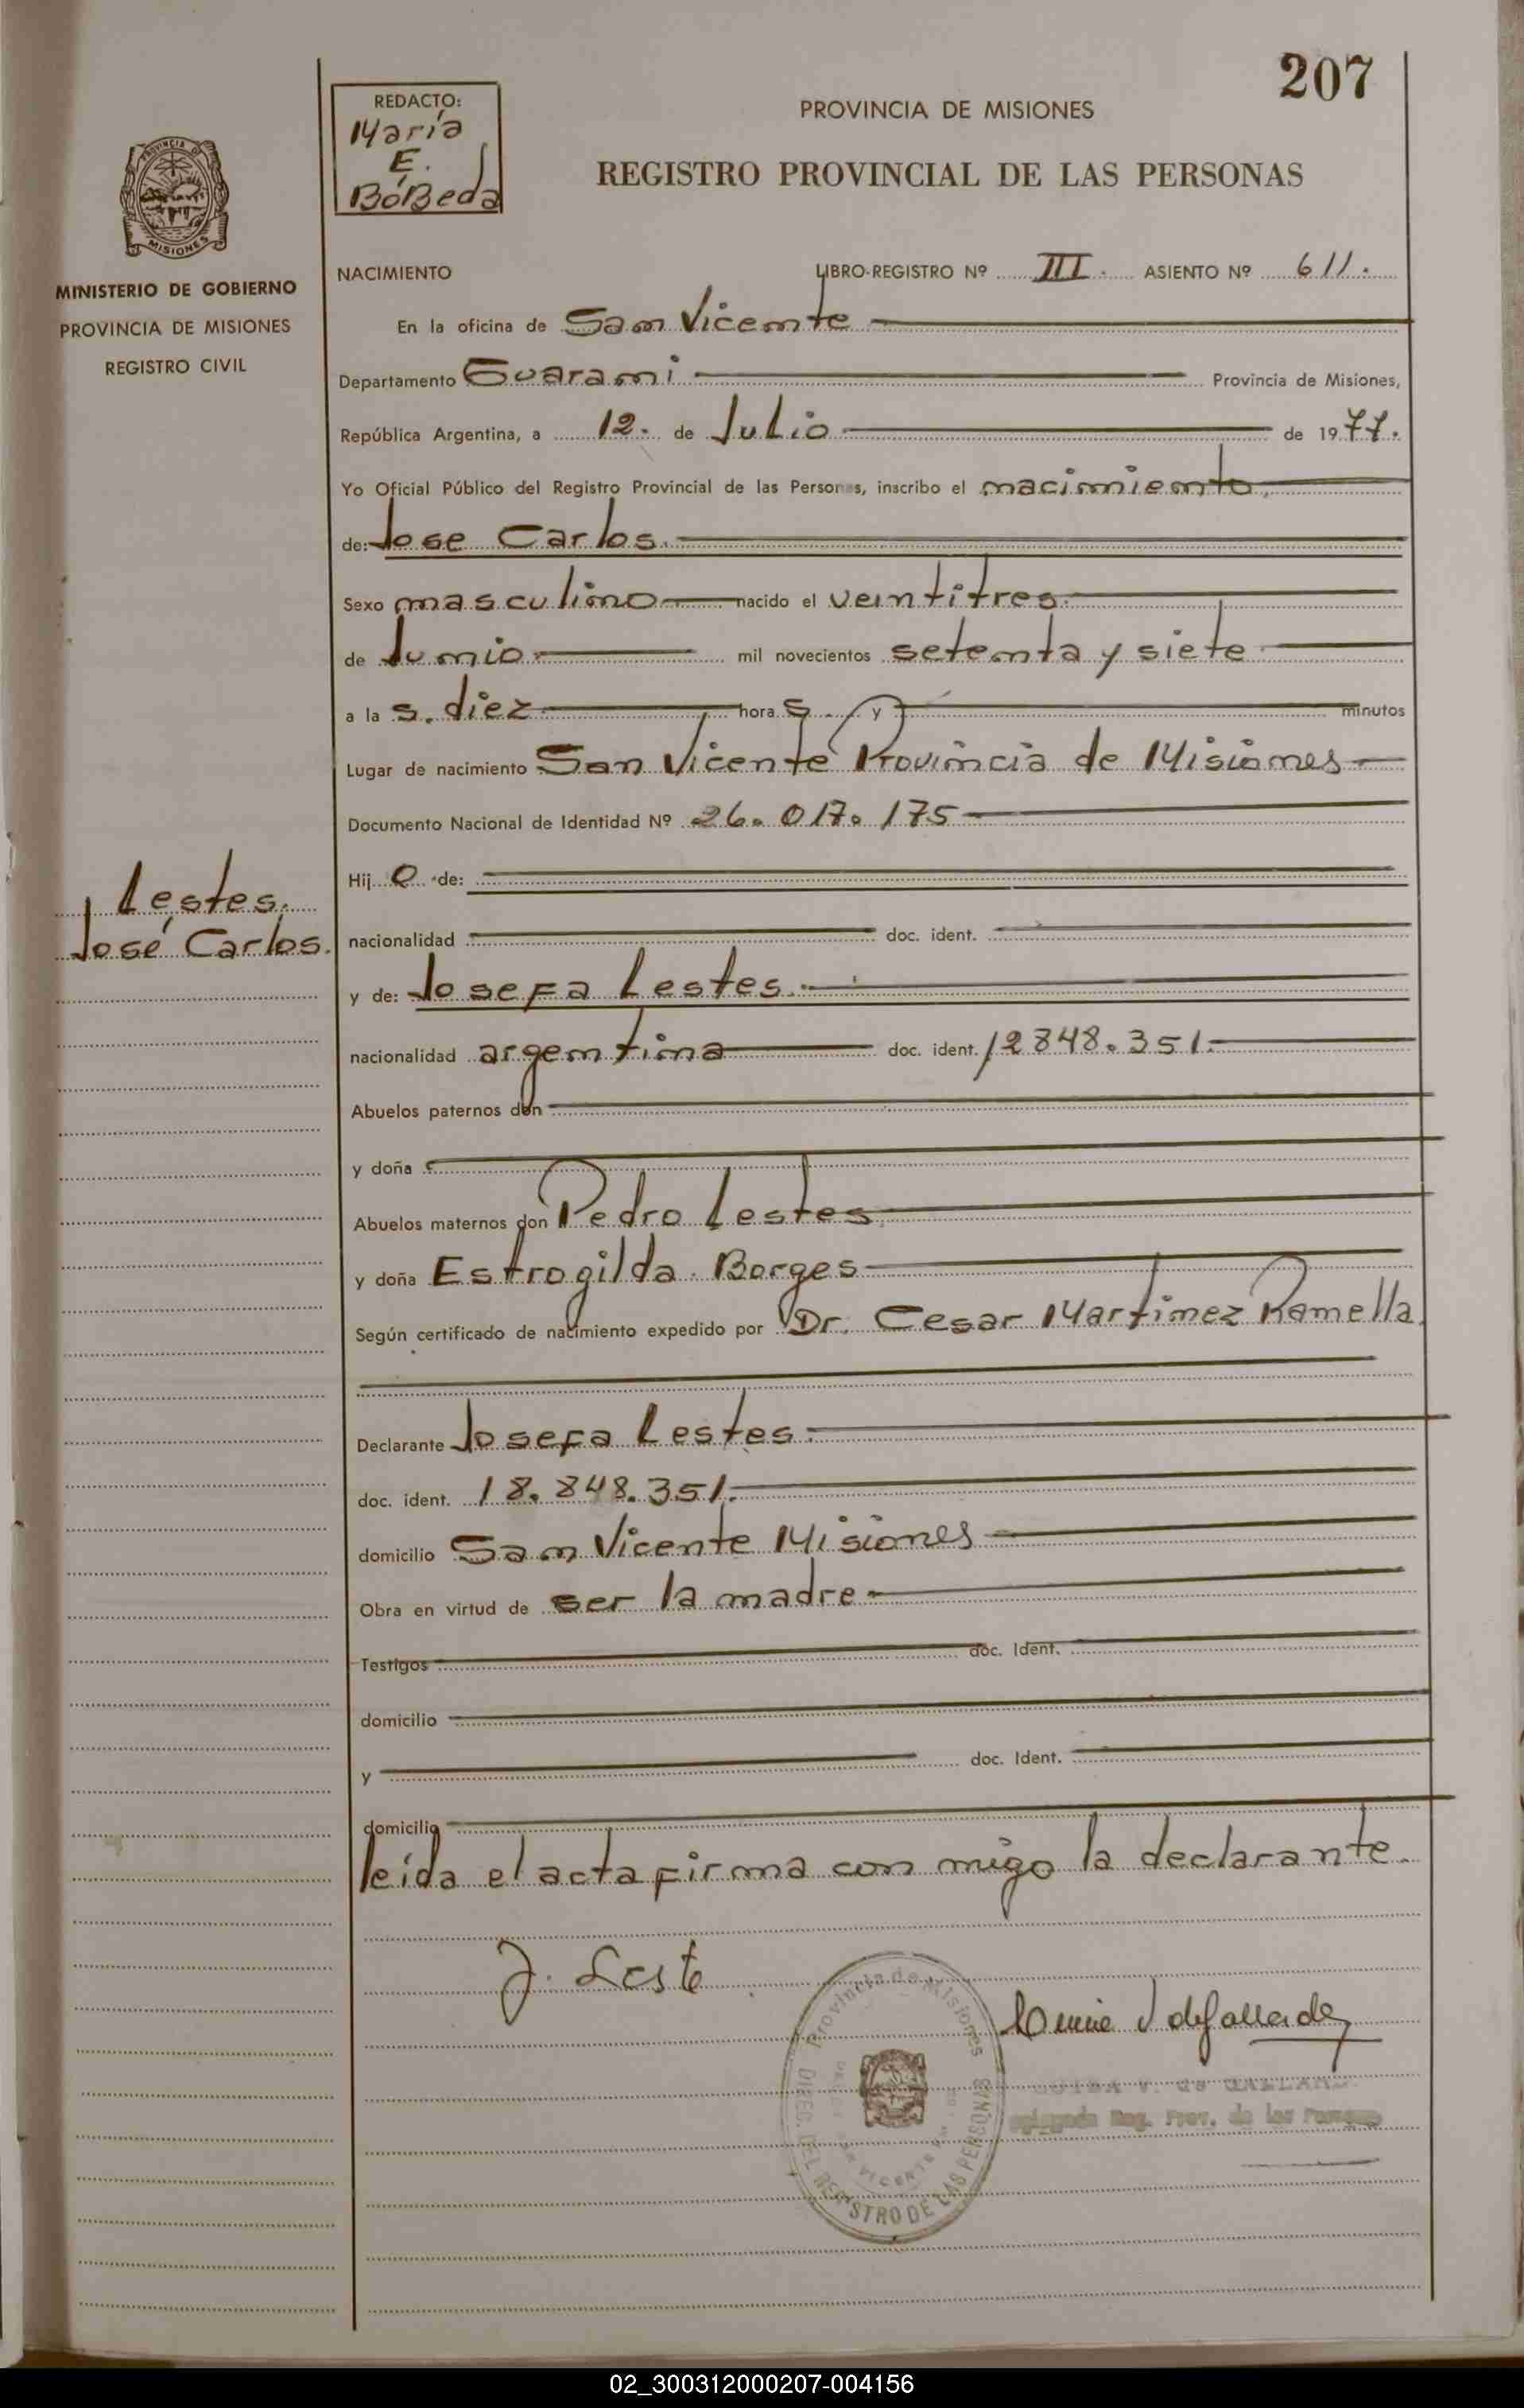 207
REDACTO:
María
E.
BóBeda
PROVINCIA DE MISIONES
REGISTRO PROVINCIAL DE LAS PERSONAS
PROVINCIA DE
MISIONES
MINISTERIO DE GOBIERNO
PROVINCIA DE MISIONES
REGISTRO CIVIL
NACIMIENTO LIBRO-REGISTRO Nº III. ASIENTO Nº 611.
En la oficina de San Vicente
Departamento Guarami Provincia de Misiones,
República Argentina, a 12. de Julio de 1977.
Yo Oficial Público del Registro Provincial de las Personas, inscribo el nacimiento
de: Jose Carlos.
Sexo masculino nacido el veintitres
de Junio mil novecientos setenta y siete
a las. diez horas y minutos
Lugar de nacimiento San Vicente Provincia de Misiones
Documento Nacional de Identidad Nº 26.017.175
Hijo de:
nacionalidad doc. ident.
Lestes.
José Carlos.
y de: Josefa Lestes.
nacionalidad argentina doc. ident. 12848.351.
Abuelos paternos don
y doña
Abuelos maternos don Pedro Lestes
y doña Estrogilda Borges
Según certificado de nacimiento expedido por Dr. Cesar Martinez Ramella.
Declarante Josefa Lestes.
doc. ident. 18.848.351.
domicilio San Vicente Misiones
Obra en virtud de ser la madre
Testigos doc. Ident.
domicilio
y doc. Ident.
domicilio
leída el acta firma con migo la declarante.
J. Leste
Provincia de Misiones
DIREC. DEL REGISTRO DE LAS PERSONAS
Reg. Prov. de las Personas
02_300312000207-004156